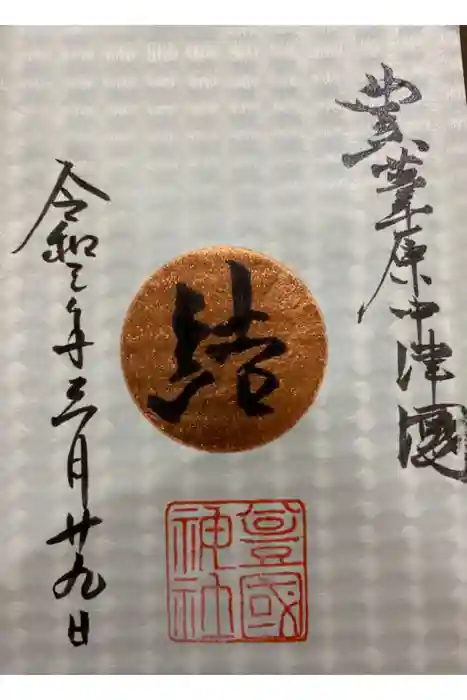 豊葦原中津國
結
豊國
神社
令和三年三月廿九日